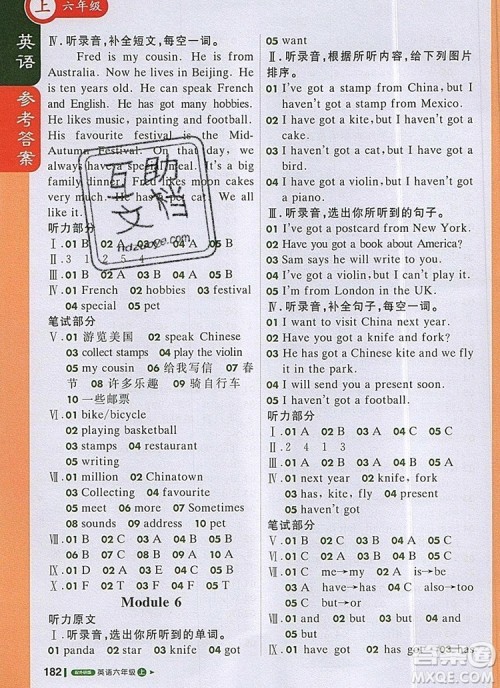 上 六年级
英语
参考答案
Ⅳ.听录音,补全短文,每空一词。
Fred is my cousin. He is from
Australia. Now he lives in Beijing. He
is ten years old. He can speak French
and English. He has got many hobbies.
He likes music, painting and football.
His favourite festival is the Mid-
Autumn Festival. On that day, we
always have a special meal. It's a big
family dinner. Fred likes moon cakes
very much. He has a pet cat. We all
like it.
听力部分
Ⅰ.01 B 02 A 03 04 A 05 B
Ⅱ.3 1 2 5 4
Ⅲ.01 B 02 B 03 A 04 A 05 B
Ⅳ.01 French 02 hobbies 03 festival
04 special 05 pet
笔试部分
Ⅴ.01 游览美国 02 speak Chinese
03 collect stamps 04 play the violin
05 my cousin 06 给我写信 07 春
节 08 许多乐趣 09 骑自行车
10 一些邮票
Ⅵ.01 bike/bicycle
02 playing basketball
03 stamps 04 restaurant
05 writing
Ⅶ.01 million 02 Chinatown
03 Collecting 04 favourite
05 meet 06 more 07 Sometimes
08 sounds 09 about 10 pet
Ⅷ.01 B 02 C 03 B 04 B 05 C
Ⅸ.01 B 02 D 03 E 04 A 05 C
Ⅹ.01 F 02 F 03 F 04 T 05 F
Module 6
听力原文
Ⅰ.听录音,选出你所听到的单词。
01 panda 02 star 03 World 04 got
182 英语六年级 上
05 want
Ⅱ.听录音,根据所听内容,给下列图片
排序。
01 I've got a stamp from China, but I
haven't got a stamp from Mexico.
02 I have got a kite, but I haven't got a
hat.
03 I have got a violin, but I haven't got a
piano.
Ⅲ.听录音,选出你所听到的句子。
01 I've got a postcard from New York.
02 Have you got a book about America?
03 Sam says he will write to me.
04 I've got a violin, but I can't play it.
05 I'm from London in the UK.
Ⅳ.听录音,补全句子,每空一词。
01 I want to visit China next year.
02 Have you got a knife and fork?
03 He has got a Chinese kite and we fly
it in the park.
04 I will send you a present soon.
05 I haven't got a football.
听力部分
Ⅰ.01 A 02 B 03 A 04 C 05 C
Ⅱ.2 4 1 3
Ⅲ.01 A 02 B 03 C 04 C 05 A
Ⅳ.01 next year 02 knife, fork
03 has, kite, fly 04 present
05 haven't got
笔试部分
Ⅴ.01 C me→my 02 B as→at
03 B haven't→hasn't
04 A these→this
05 C also→too
Ⅵ.01 A 02 B 03 C 04 A 05 C
Ⅶ.01 C 02 D 03 E 04 B 05 A
Ⅷ.01 have got 02 has got
互助文档
hdzuoye.com
答案圈
MXQE.COM